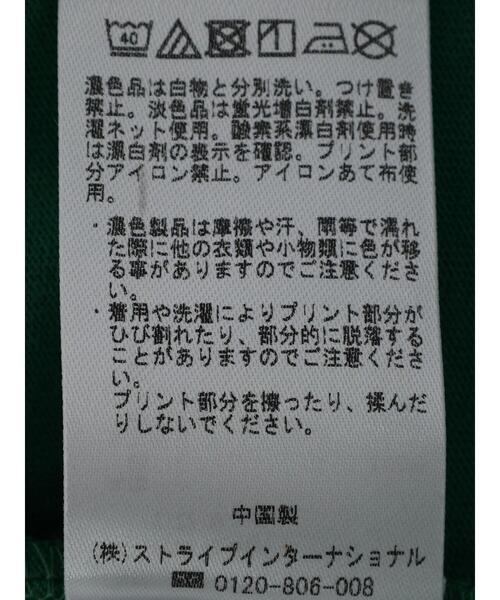 40
濃色品は白物と分別洗い。つけ置き
禁止。淡色品は蛍光増白剤禁止。洗
濯ネット使用。酸素系漂白剤使用時
は漂白剤の表示を確認。プリント部
分アイロン禁止。アイロンあて布使
用。
・濃色製品は摩擦や汗、雨等で濡れ
た際に他の衣類や小物類に色が移
る事がありますのでご注意くださ
い。
・着用や洗濯によりプリント部分が
ひび割れたり、部分的に脱落する
ことがありますのでご注意くださ
い。
プリント部分を擦ったり、揉んだ
りしないでください。
中国製
(株)ストライプインターナショナル
0120-806-008